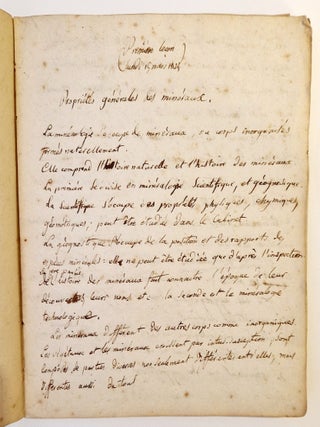 Première leçon
Propriétés générales des minéraux.
La minéralogie s'occupe de minéraux, ou corps inorganisés
formés naturellement.
Elle comprend l'histoire naturelle et l'histoire des minéraux
La première se divise en minéralogie scientifique, et géognostique.
La scientifique s'occupe des propriétés physiques, chymiques,
géométriques; peut être étudiée dans le Cabinet.
La géognostique s'occupe de la position et des rapports des
espèces minérales: elle ne peut être étudiée que d'après l'inspection
L'histoire des minéraux fait connaître l'époque de leur
découverte, leurs noms et la seconde et la minéralogie
technologique.
Les minéraux diffèrent des autres corps comme inorganiques.
et les minéraux croissent par intus-susception, sont
composés de parties diverses non seulement différentes entr'elles, mais
différentes aussi du tout